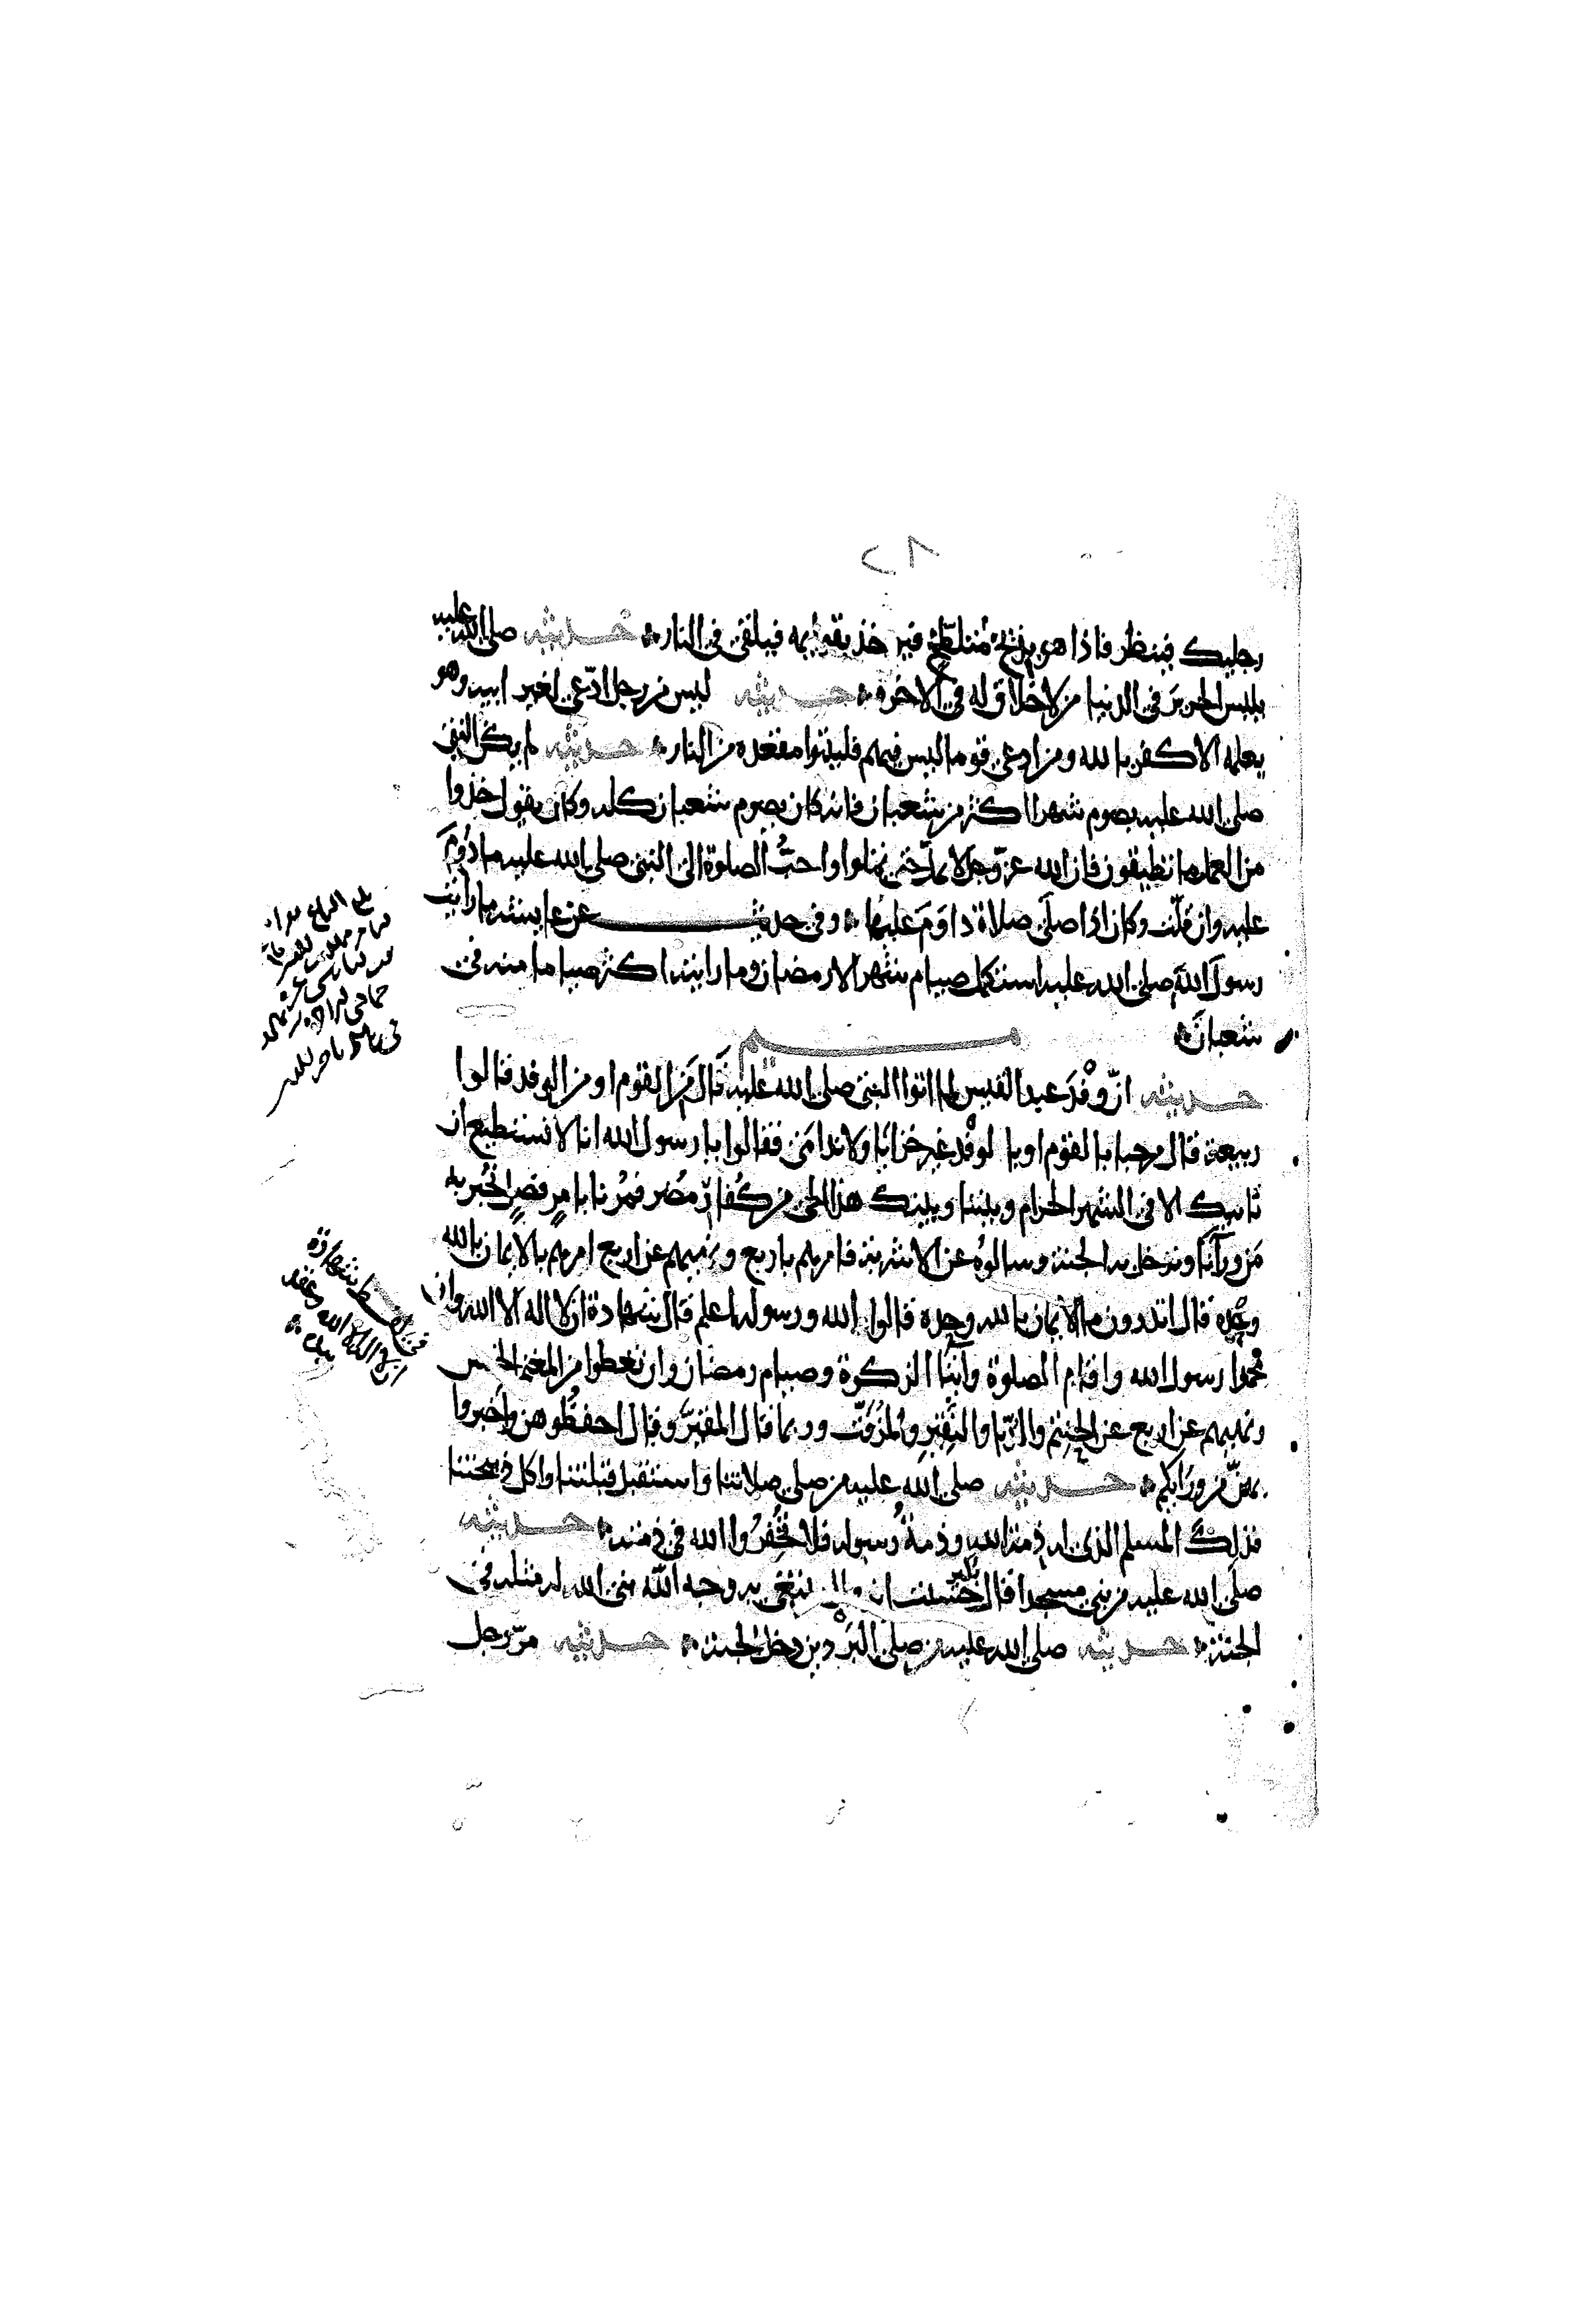 رجليك فينظر فاذا هو بذِيخ مُتَلَطِّخ فيوخذ بقوايمه فيلقى في النار حديثه صلى الله عليه
يلبس الحرير في الدنيا من لا خلاق له في الاخرة حديثه ليس من رجل ادّعى لغير ابيه وهو
يعلمه الا كفر بالله ومن ادعى قوما ليس فيهم فليتبوا مقعده من النار حديثه لم يكن النبي
صلى الله عليه يصوم شهرا اكثر من شعبان فانه كان يصوم شعبان كله وكان يقول خذوا
من العمل ما تطيقون فان الله عز وجل لا يمل حتى تملوا واحبُّ الصلوة الى النبي صلى الله عليه ما دُووِمَ
عليه وان قلّت وكان اذا صلى صلاة داوَمَ عليها وفي حديث عن عايشه ما رايت
رسولَ الله صلى الله عليه استكمل صيام شهر الا رمضان وما رايته اكثر صياما منه في
شعبان
حديثه انّ وفْدَ عبد القيس لما اتوا النبي صلى الله عليه قال مَن القوم او من الوفد قالوا
ربيعة قال مرحبا بالقوم او بالوفْد غير خزايا ولا ندامى فقالوا يا رسول الله انا لا نستطيع ان
ناتيك الا في الشهر الحرام وبيننا وبينك هذا الحي من كُفّار مُضر فمُرنا بامرٍ فصلٍ نُخبر به
مَن ورآنا وندخل به الجنة وسالوه عن الاشربة فامرهم باربع ونهيهم عن اربع امرهم بالايمان بالله
وحده قال اتدرون ما الايمان بالله وحده قالوا الله ورسوله اعلم قال شهادة ان لا اله الا الله وان
محمدا رسول الله واقام الصلوة وايتا الزكوة وصيام رمضان وان تعطوا من المغنم الخمس
ونهيهم عن اربع عن الحنتم والدُبّا والنقير والمزفّت وربما قال المقيّر وقال احفظُوهن واَخبروا
بهنّ من ورايكم حديثه صلى الله عليه من صلى صلاتنا واستقبل قبلتنا واكل ذبيحتنا
فذلك المسلم الذي له ذمة الله وذمة رسوله فلا تُخْفِرُوا الله في ذمته حديثه
صلى الله عليه من بنى مسجدا قال بكير حسبت انه قال يبتغي به وجه الله بنى الله له مثله في
الجنة حديثه صلى الله عليه من صلى البَرْدين دخل الجنة حديثه مرّ رجل